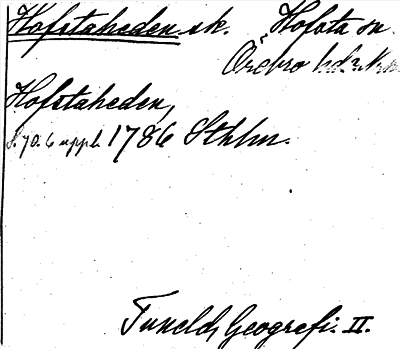 Hofstaheden sk. Hofsta sn.
Örebro hd.
Hofstaheden,
s. 70. 6 uppl. 1786 Sthlm.
Tuneld, Geografi. II.